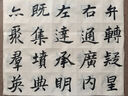 弁轉疑星
右通廣内
左達承明
既集墳典
亦聚羣英